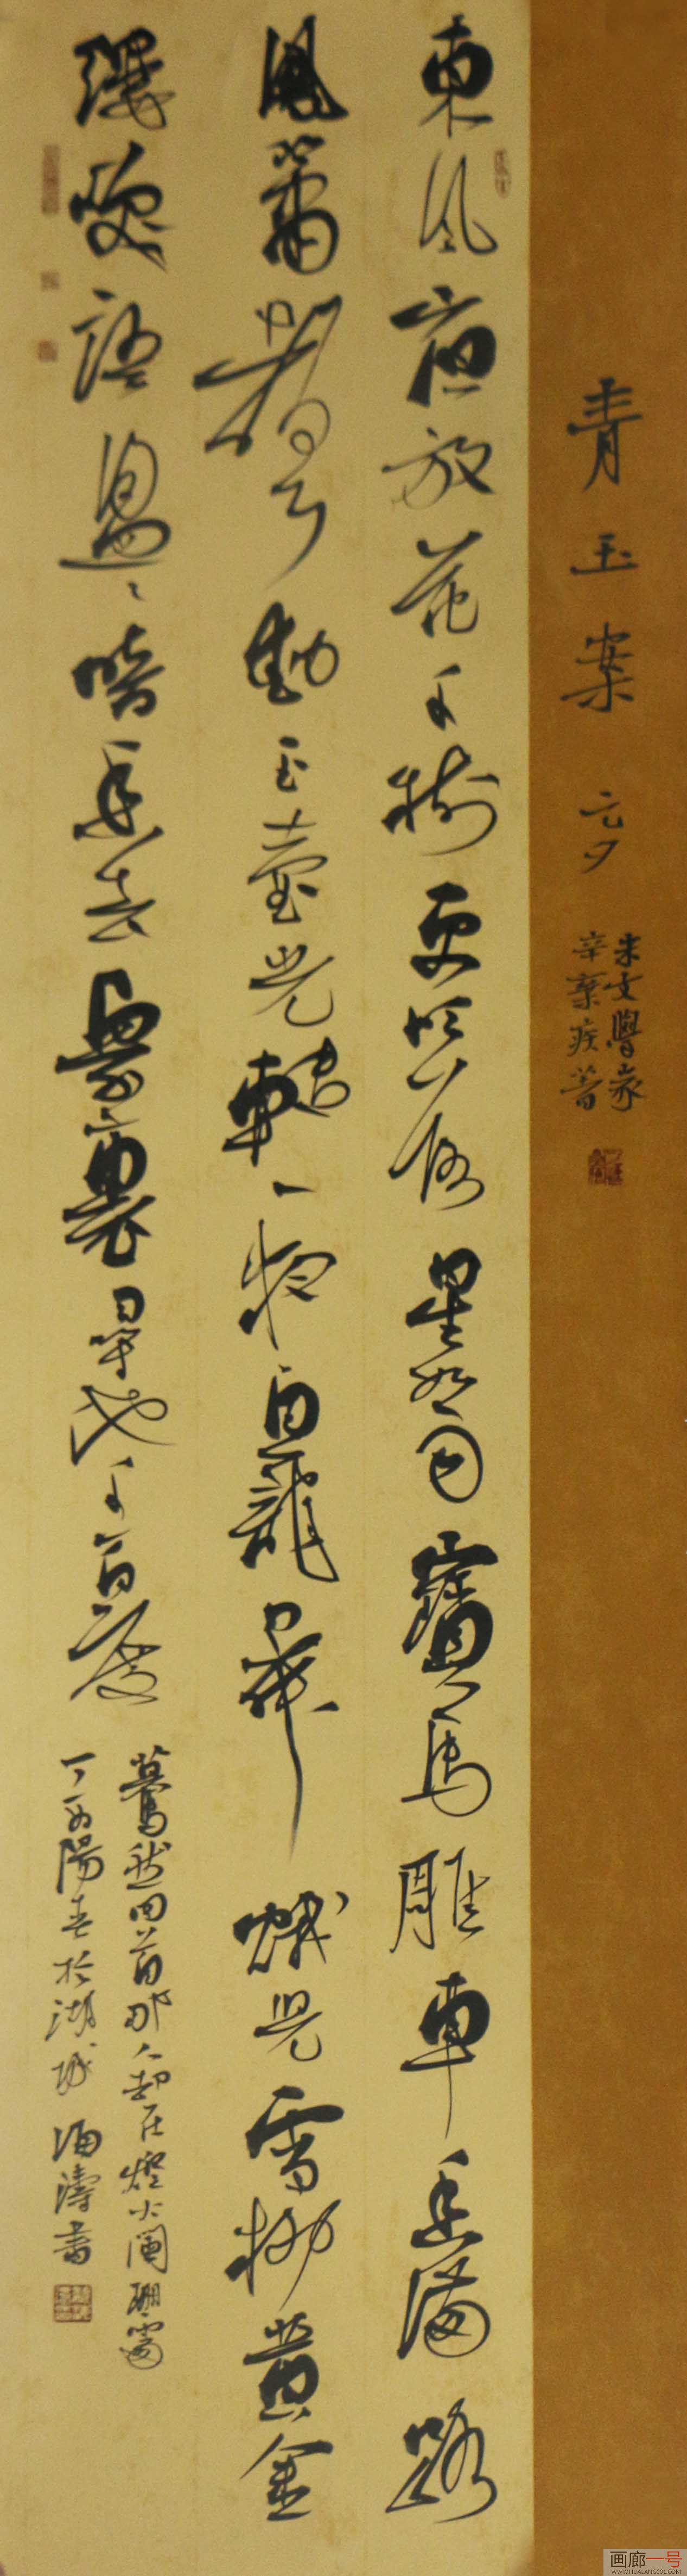 青玉案 元夕
宋文學家
辛棄疾著
東風夜放花千樹更吹落星如雨寶馬雕車香滿路
鳳簫聲動玉壺光轉一夜魚龍舞蛾兒雪柳黃金
縷笑語盈々暗香去眾裏尋他千百度
驀然回首那人卻在燈火闌珊處
丁酉陽春於湖城 海濤書
画廊一号
WWW.HUALANG001.COM